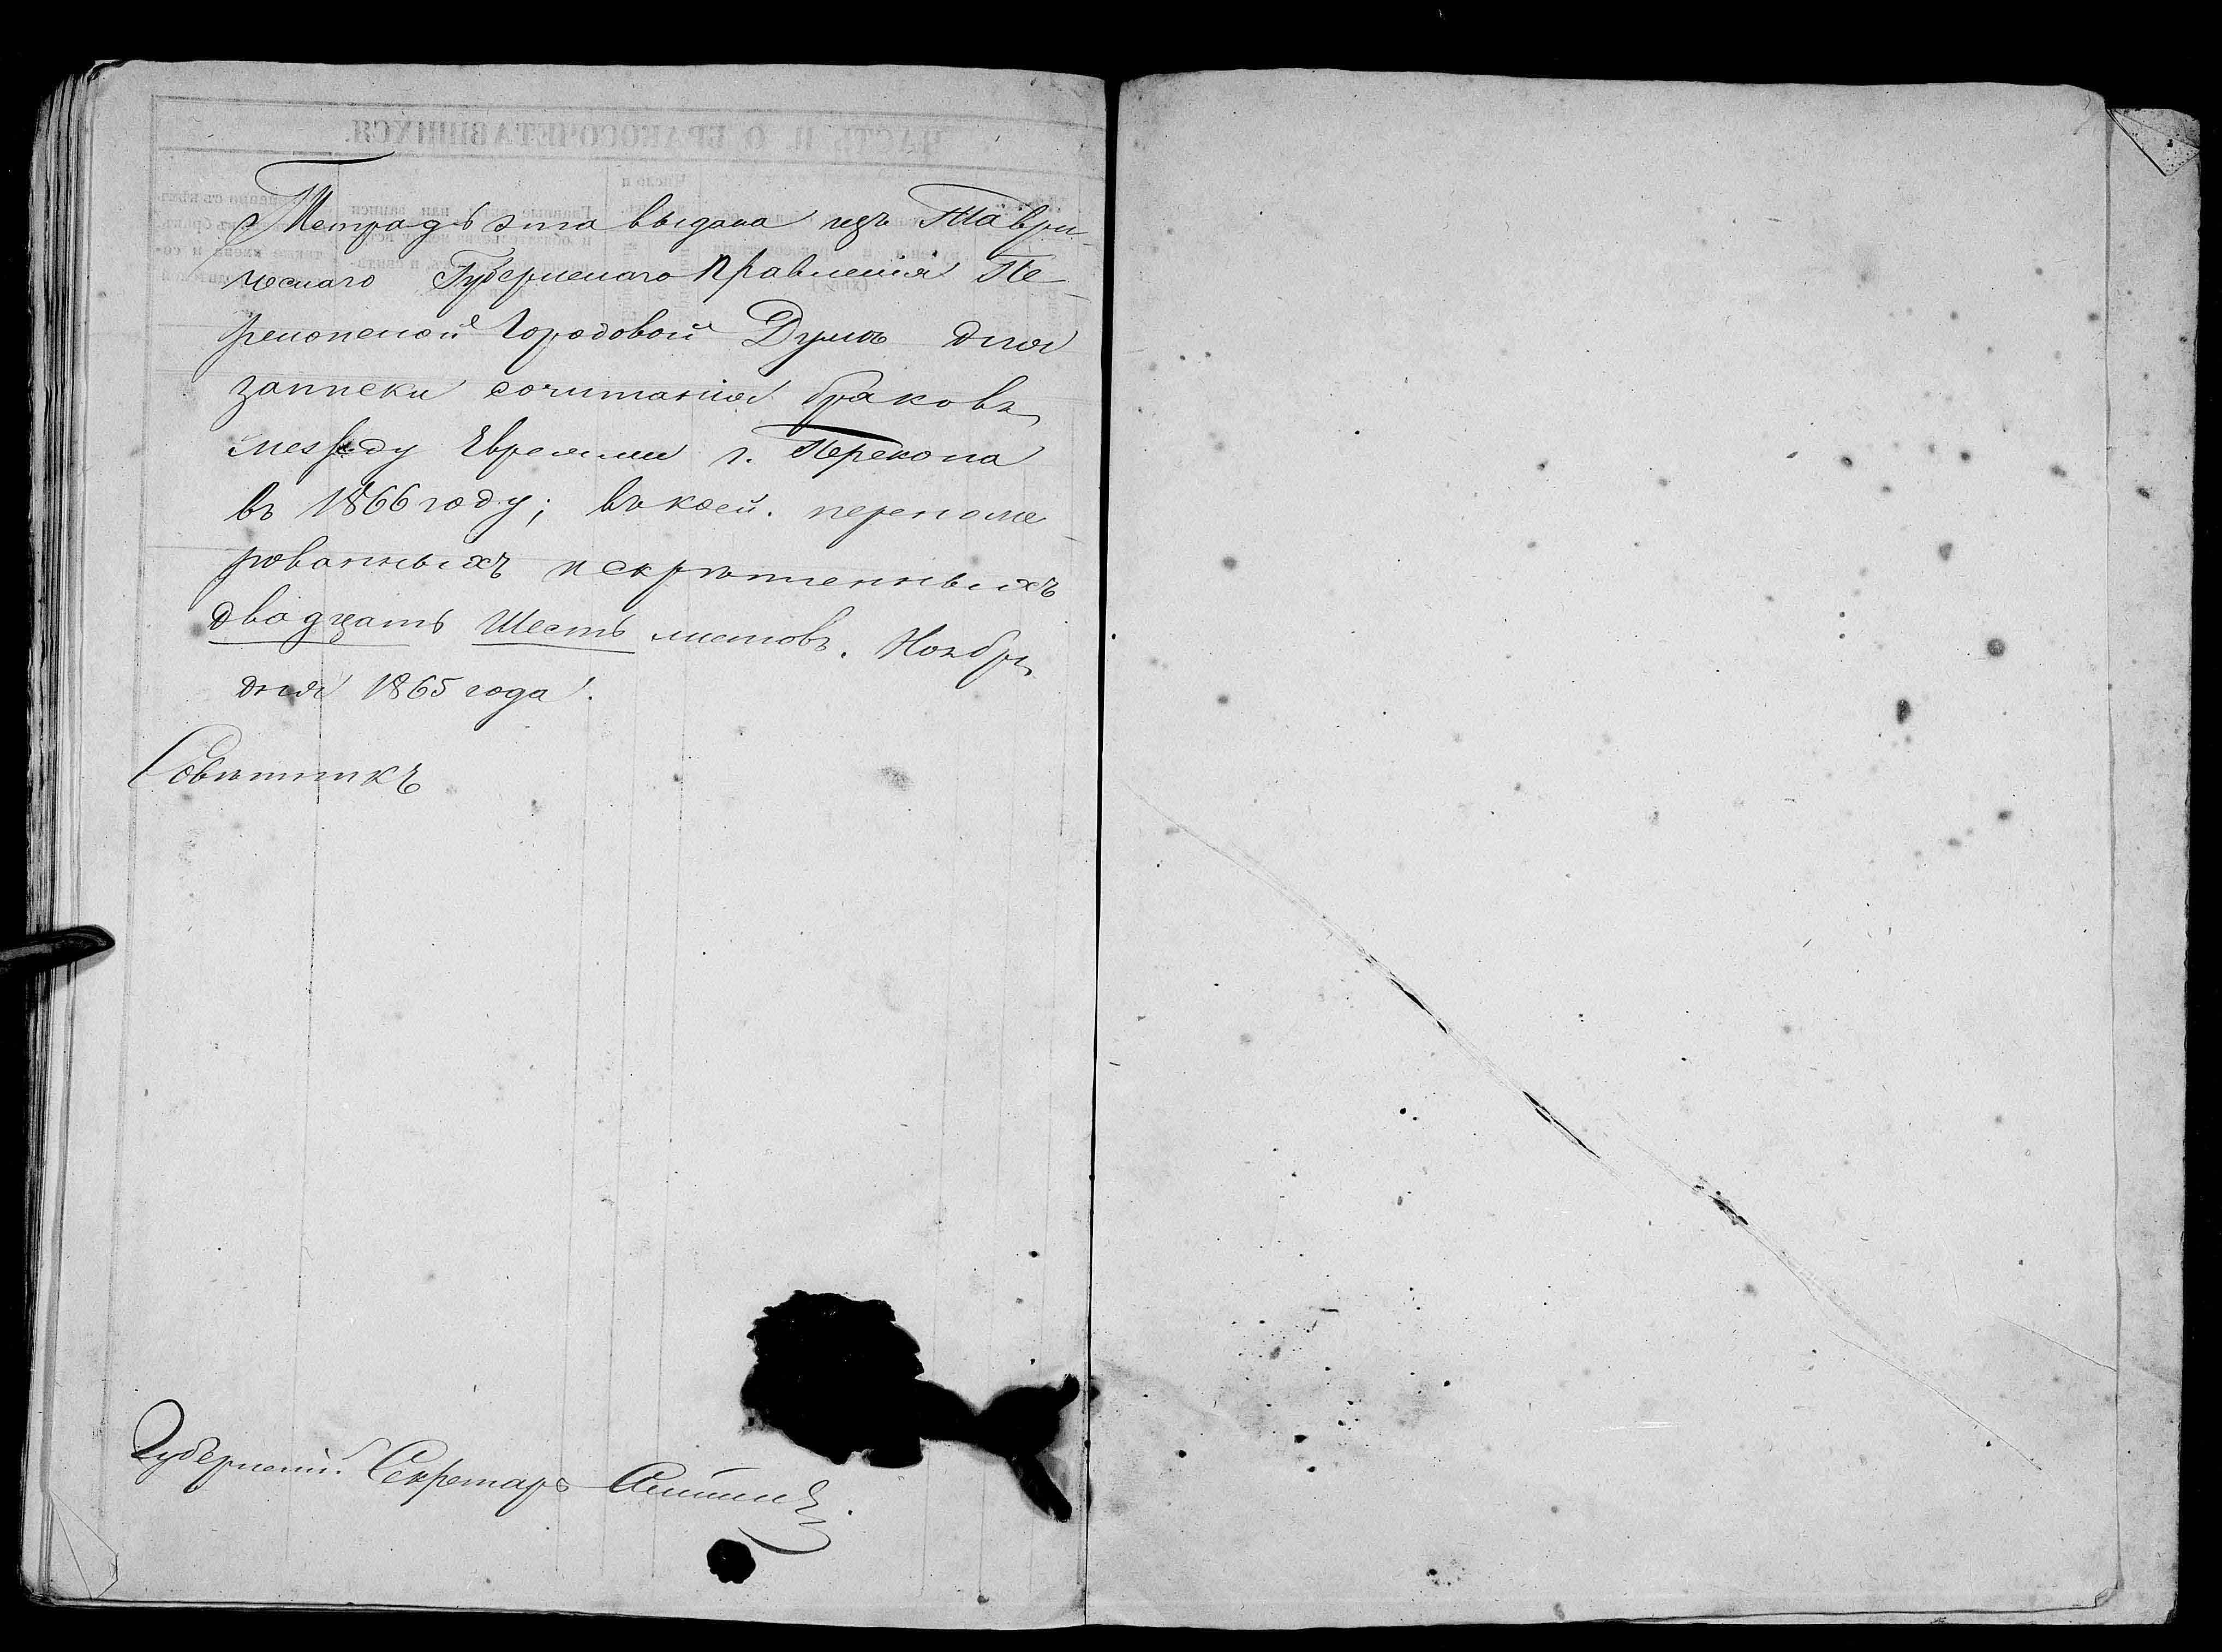 Тетрадь эта выдана изъ Таври-
ческаго Губернскаго Правленія Пе-
рекопской Городовой Думѣ для
записки сочитанія браковъ
между Евреями г. Перекопа
въ 1866 году; въ коей перенуме-
рованныхъ и скрѣпленныхъ
двадцать шесть листовъ. Ноября
дня 1865 года.
Совѣтникъ
Губернскій Секретарь
ЧАСТЬ II. О БРАКОСОЧЕТАВШИХСЯ.